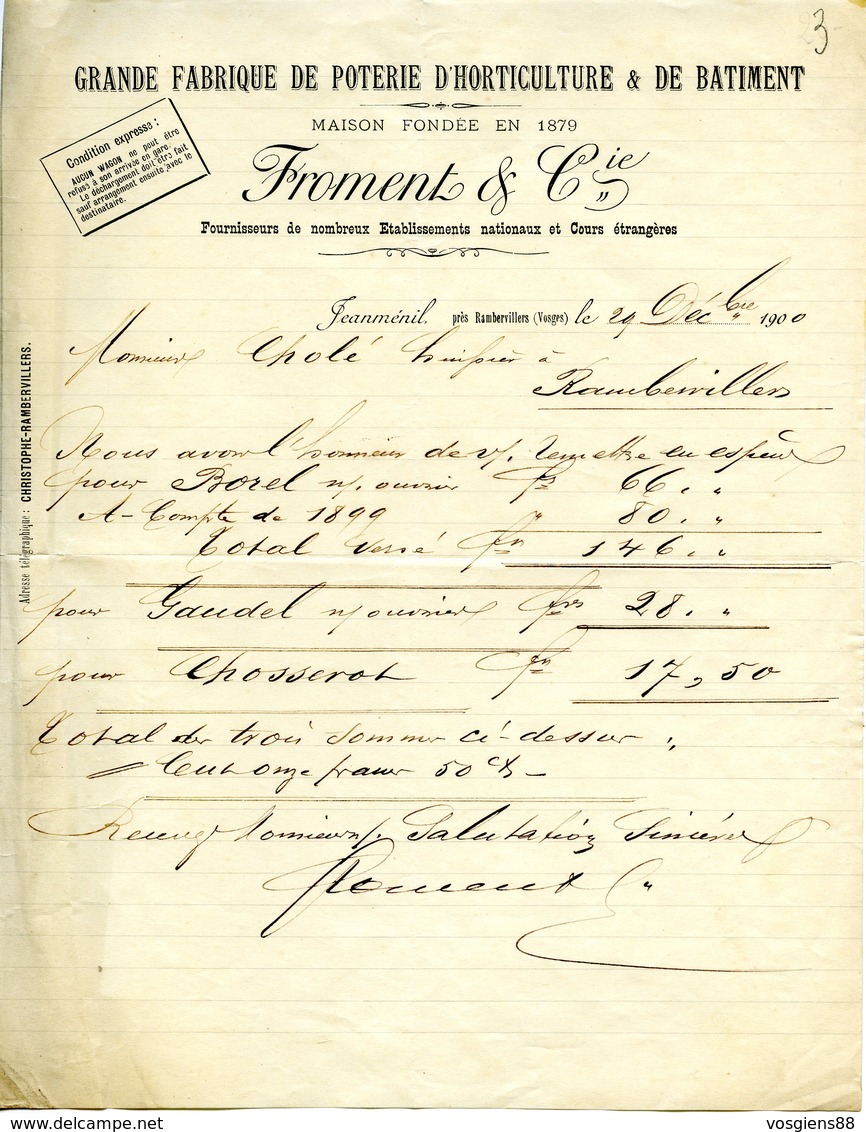 23
GRANDE FABRIQUE DE POTERIE D'HORTICULTURE & DE BATIMENT
MAISON FONDÉE EN 1879
Condition expresse :
AUCUN WAGON ne peut être
refusé à son arrivée en gare.
Le déchargement doit être fait
sauf arrangement ensuite avec le
destinataire.
Froment & Cie
Fournisseurs de nombreux Etablissements nationaux et Cours étrangères
Jeanménil, près Rambervillers (Vosges) le 29 Décbre 1900
Monsieur Cholé huissier à
Rambervillers
Adresse télégraphique : CHRISTOPHE-RAMBERVILLERS.
Nous avons l'honneur de v/. remettre en espèces
pour Borel n/. ouvrier frs 66. "
A-Compte de 1899 " 80. "
Total versé frs 146. "
pour Gaudel n/ ouvrier frs 28. "
pour Chosserot frs 17,50
Total des trois sommes ci-dessus
Cent onze francs 50 cts
Recevez Monsieur n/. Salutations Sincères
Froment
delcampe.net
vosgiens88